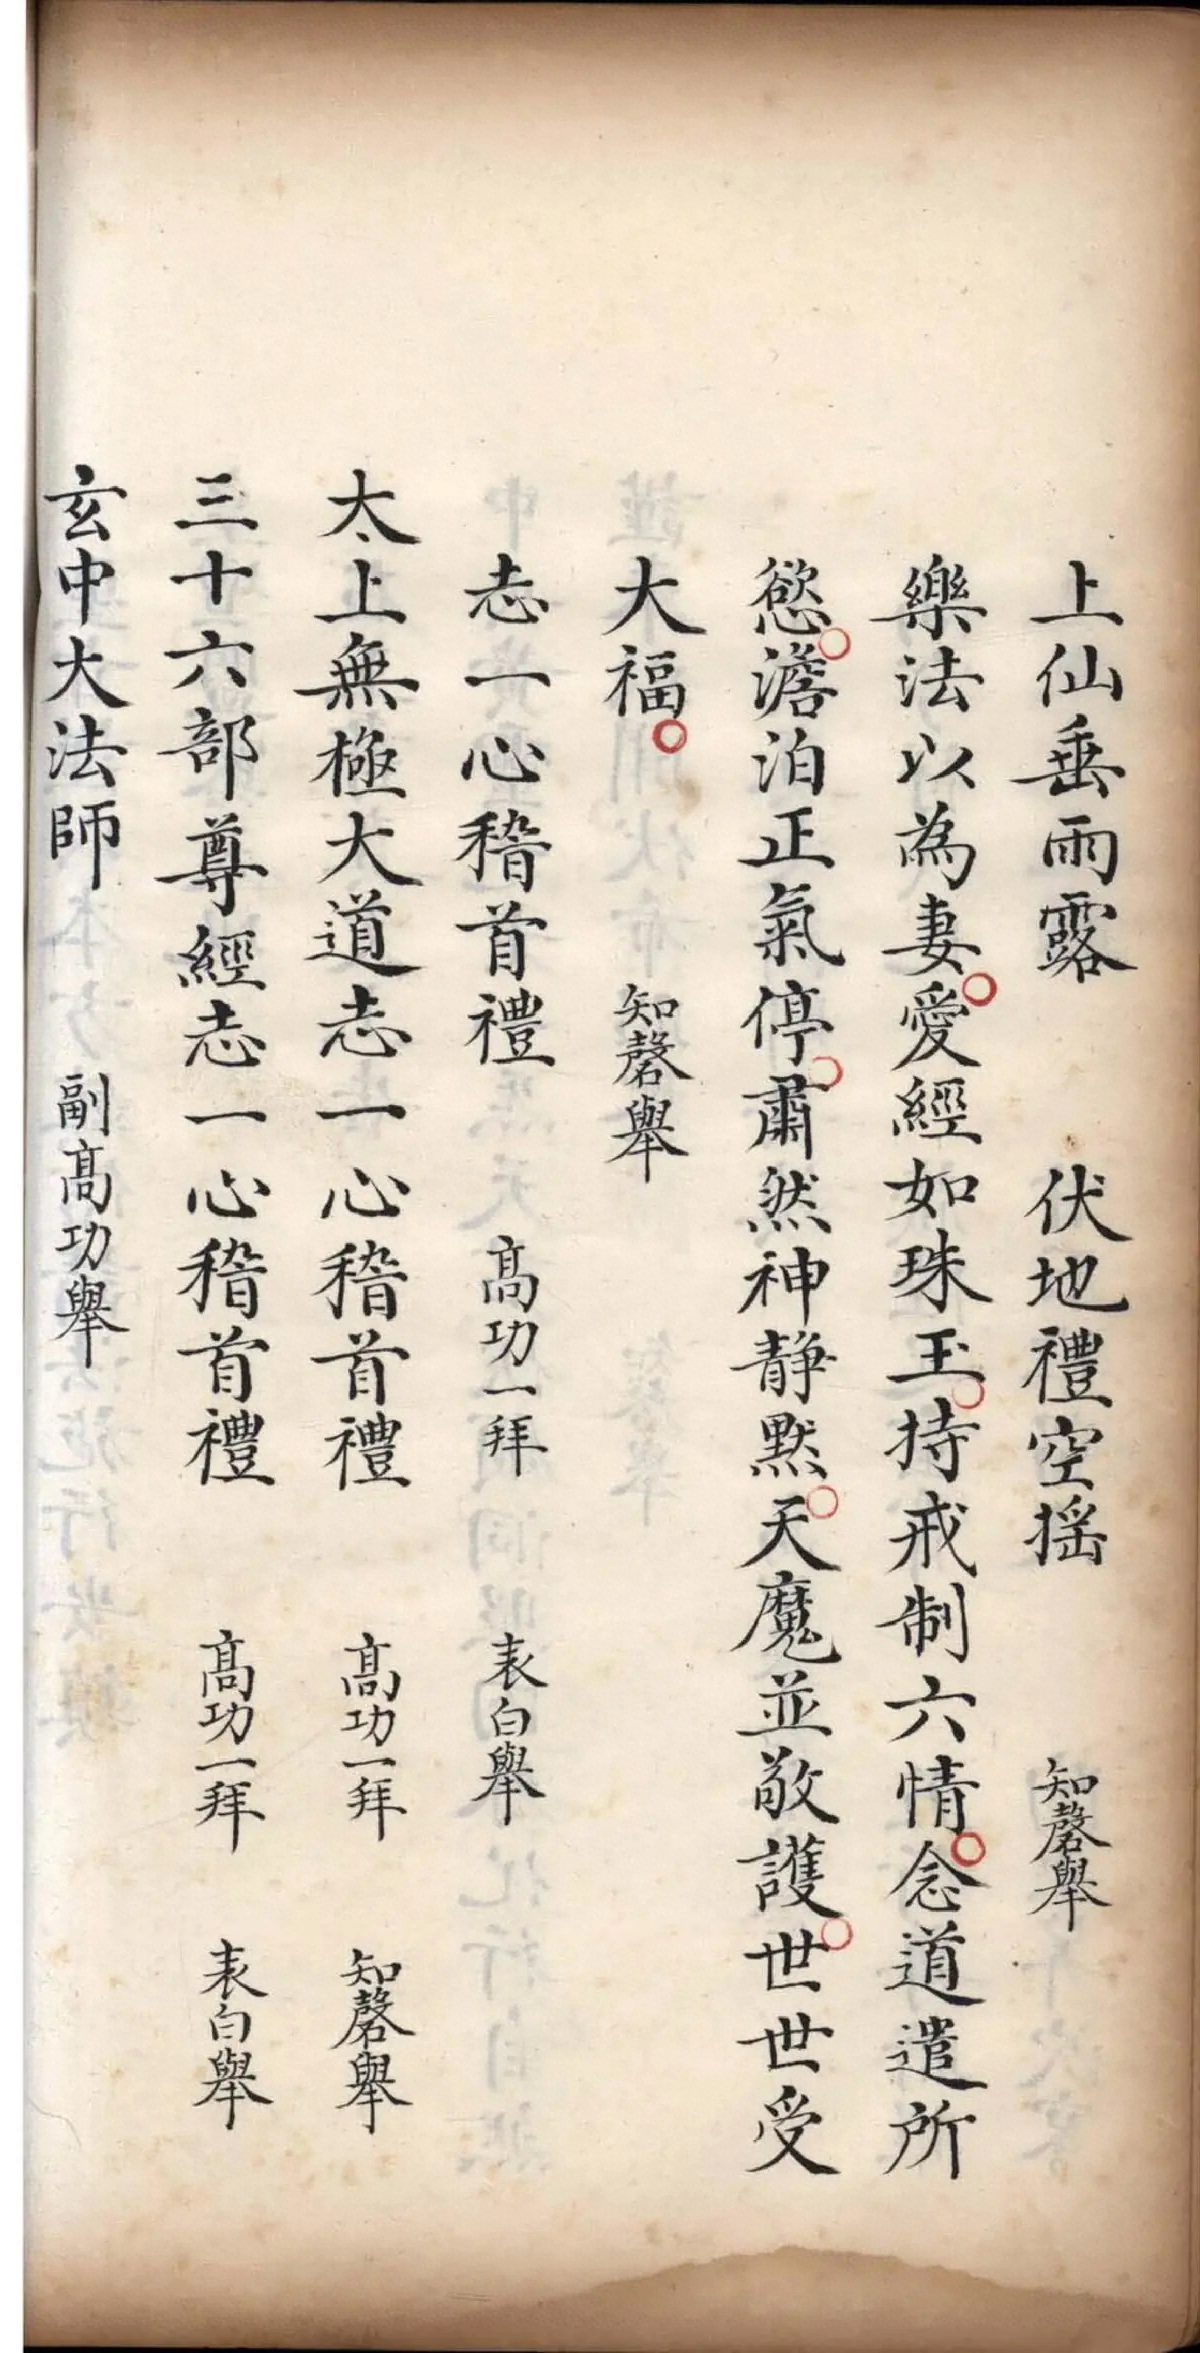 上仙垂雨露 伏地禮空摇 知磬舉
樂法以為妻○愛經如珠玉○持戒制六情○念道遣所
慾○澹泊正氣停○肅然神靜默○天魔並敬護○世世受
大福○ 知磬舉
志一心稽首禮 高功一拜 表白舉
太上無極大道志一心稽首禮 高功一拜 知磬舉
三十六部尊經志一心稽首禮 高功一拜 表白舉
玄中大法師 副高功舉